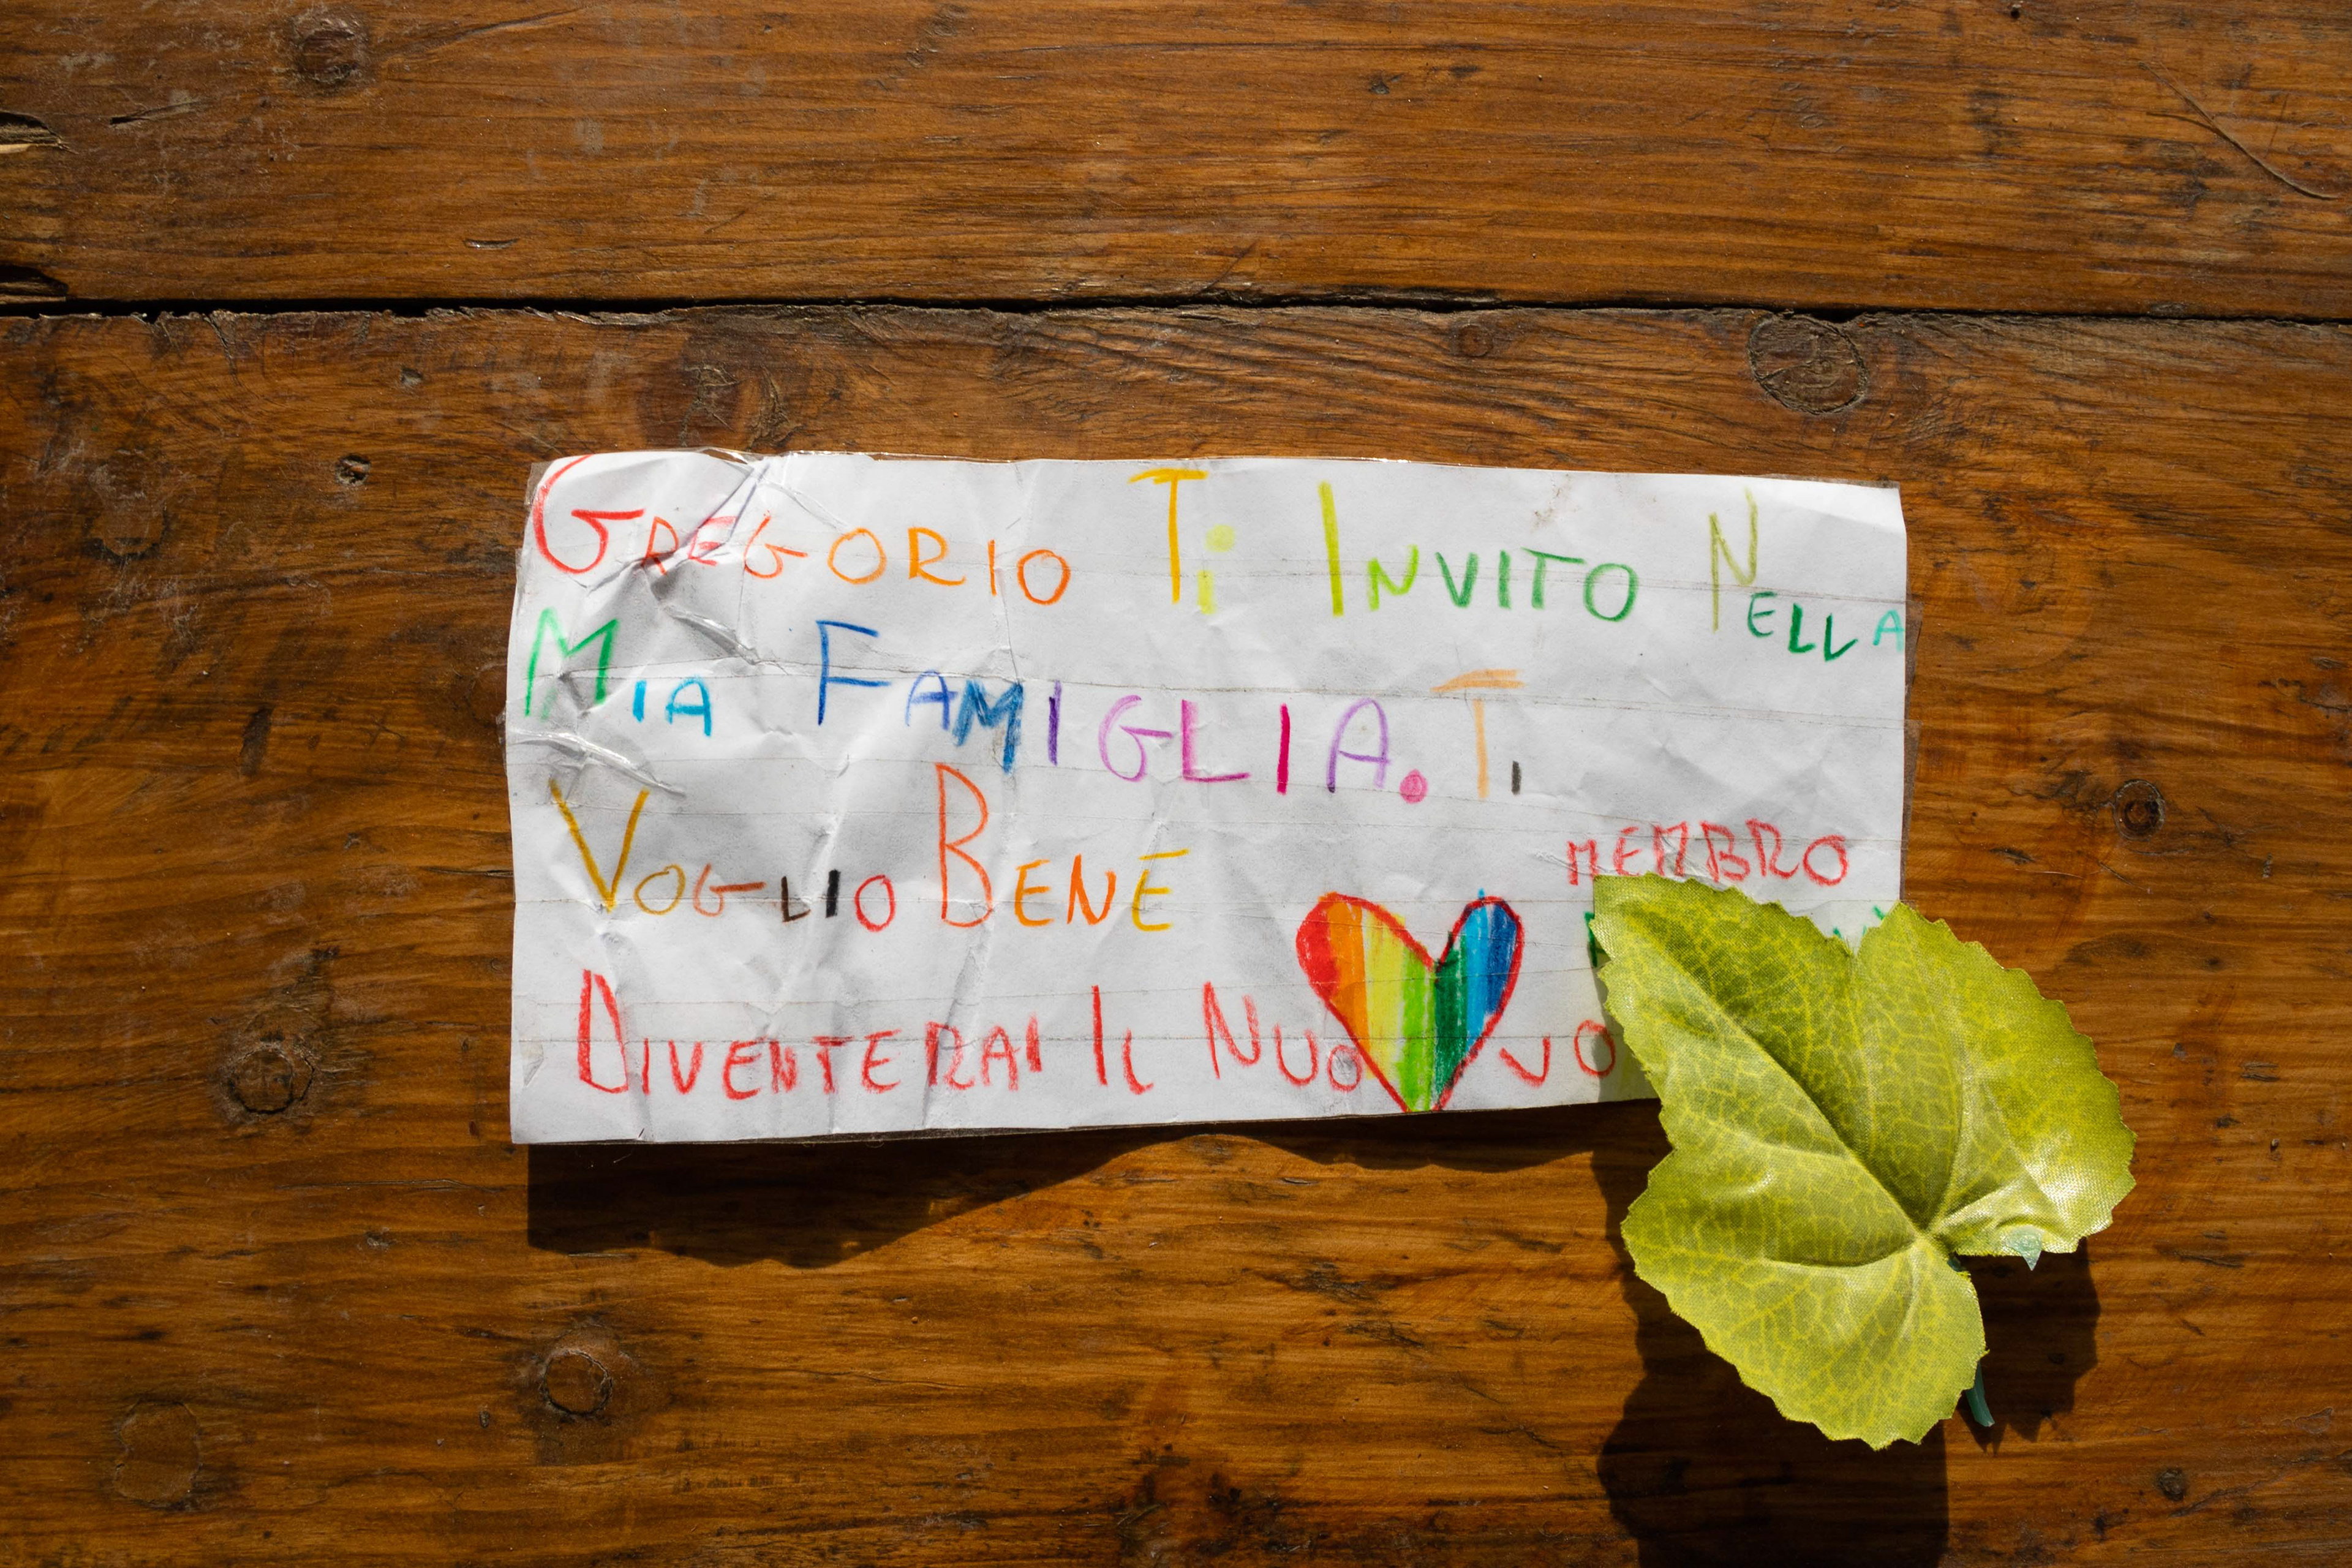 GREGORIO Ti INVITO NELLA
MIA FAMIGLIA. TI
VOGLIO BENE
DIVENTERAI IL NUOVO
MEMBRO